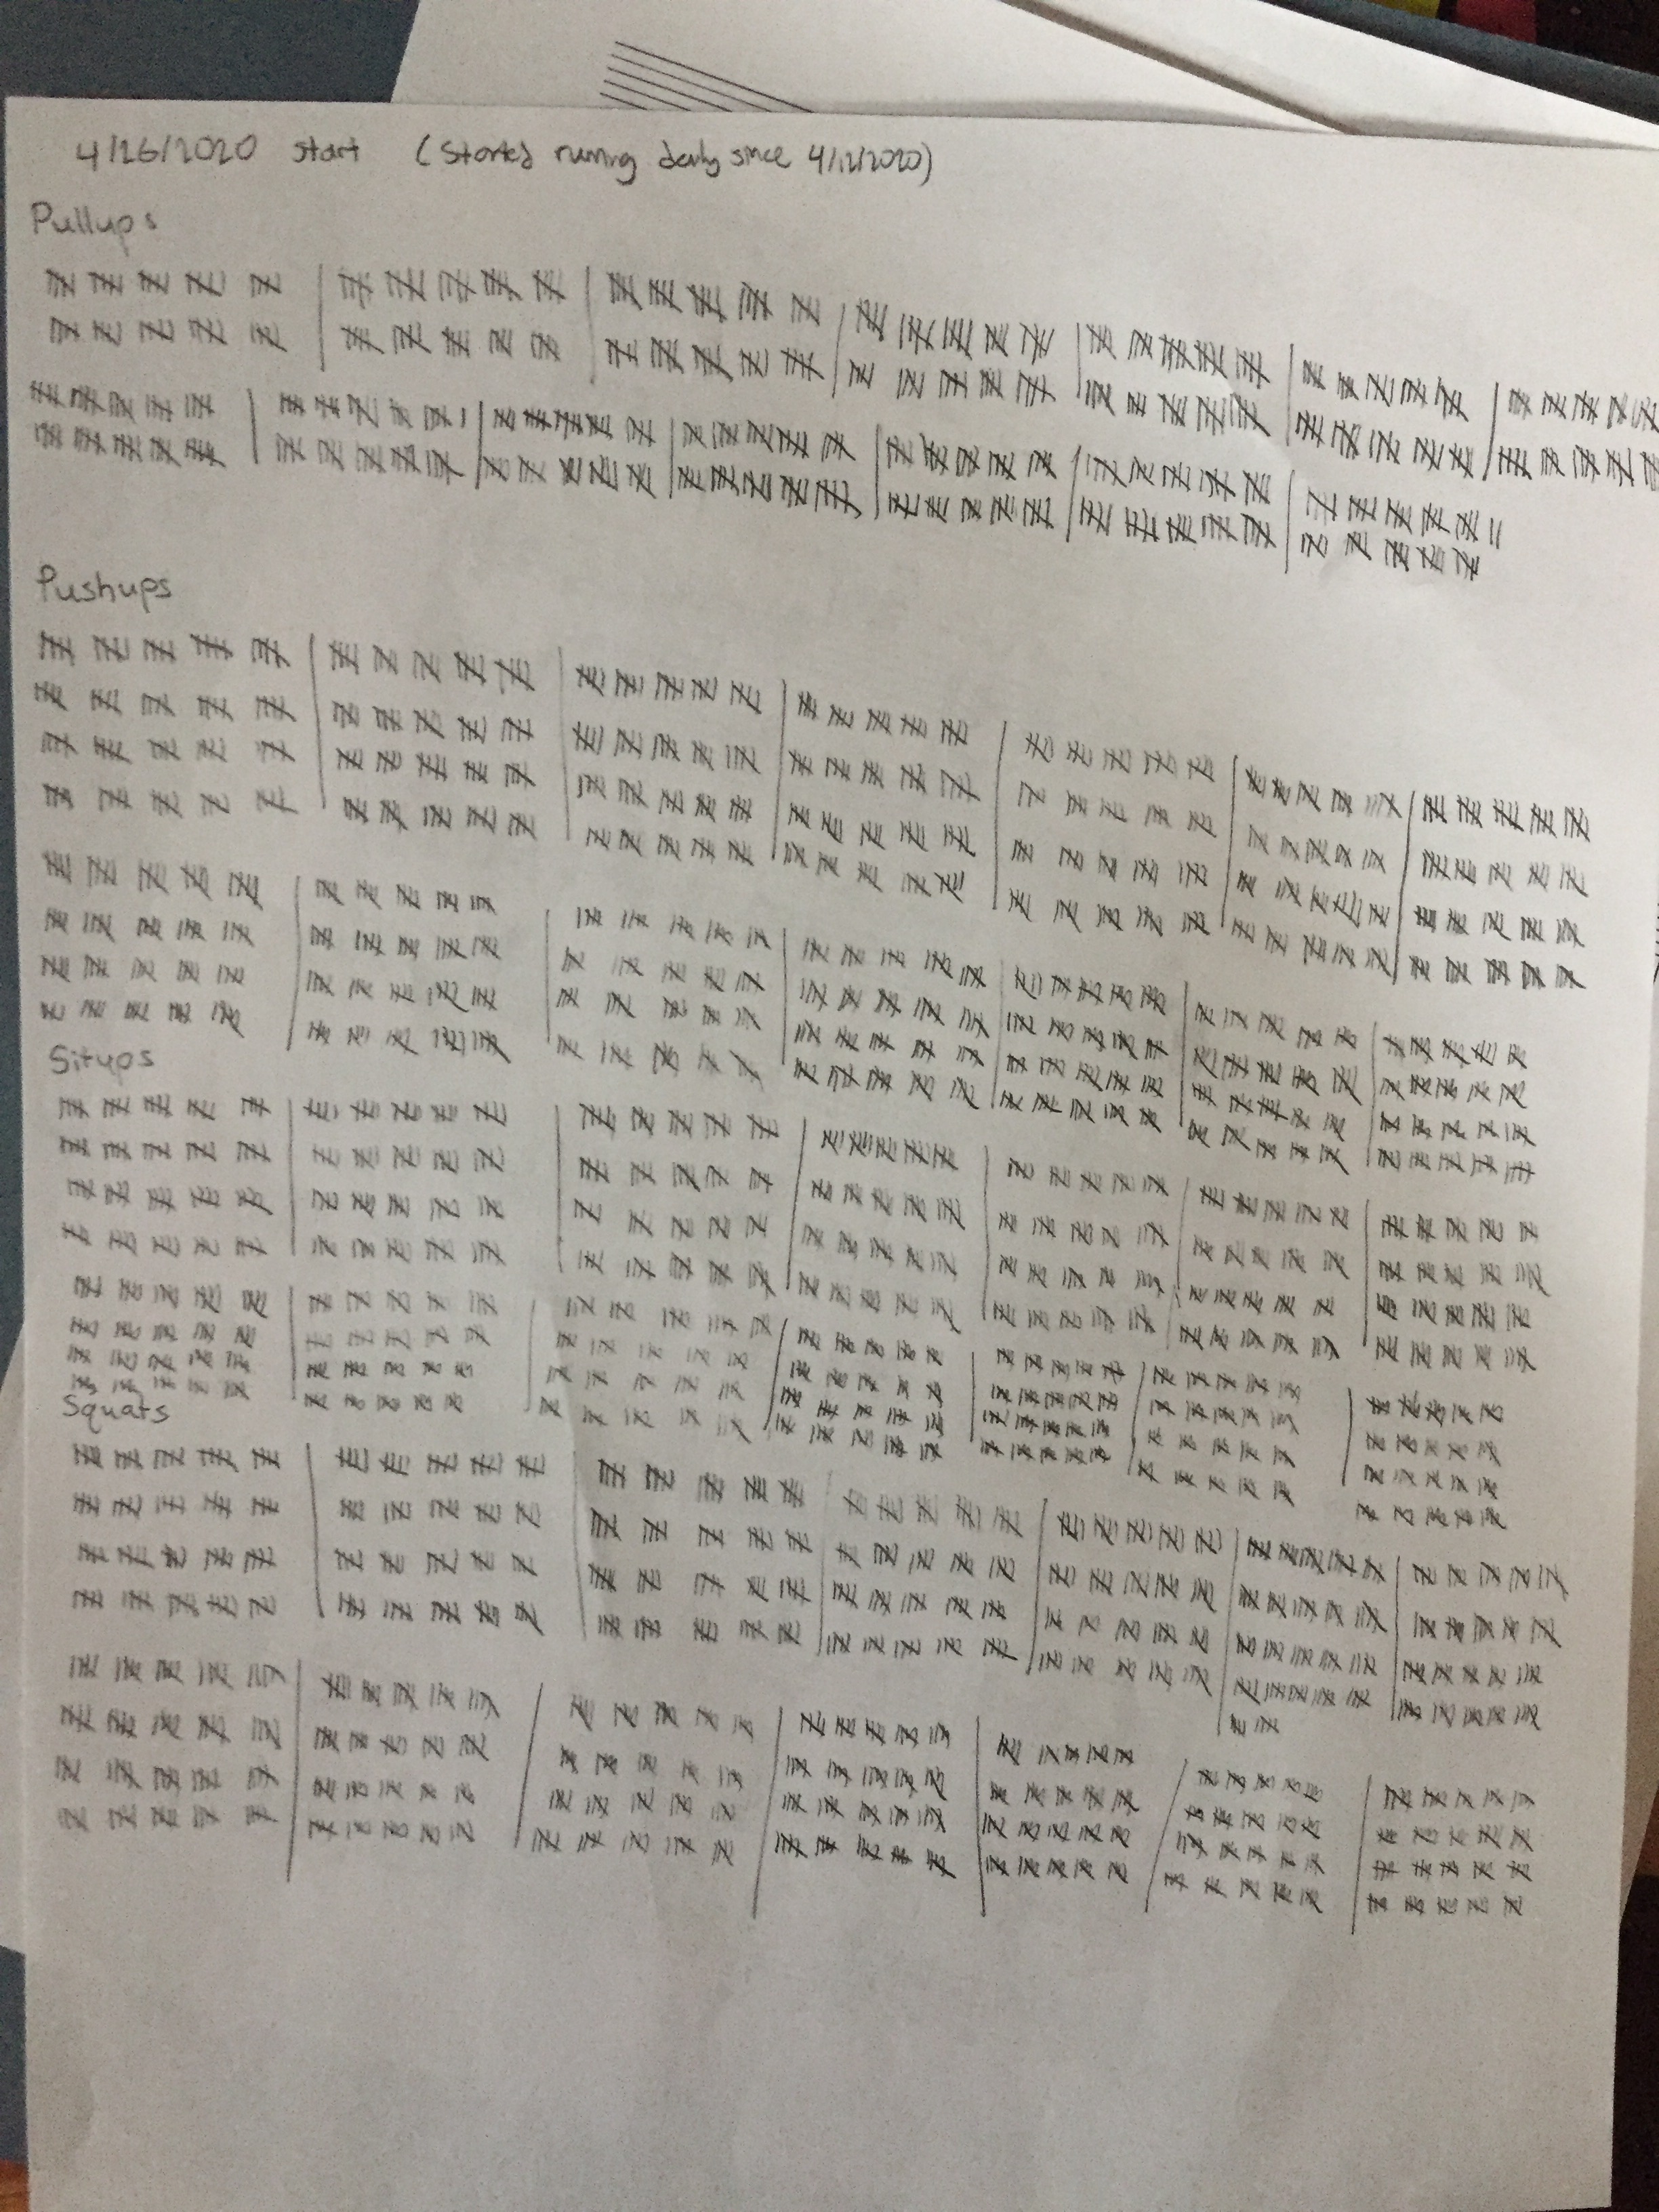 4/26/2020 start (Started running daily since 4/12/2020)
Pullups
Pushups
Situps
Squats